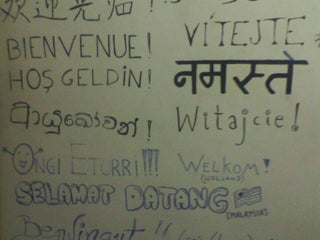 欢迎光临!
VÍTEJTE
BIENVENUE!
HOŞ GELDİN!
नमस्ते
ආයුබෝවන්!
Witajcie!
ONGI ETORRI!!!
WELKOM!
(HOLLAND)
SELAMAT DATANG
(MALAYSIA)
Benvingut!!